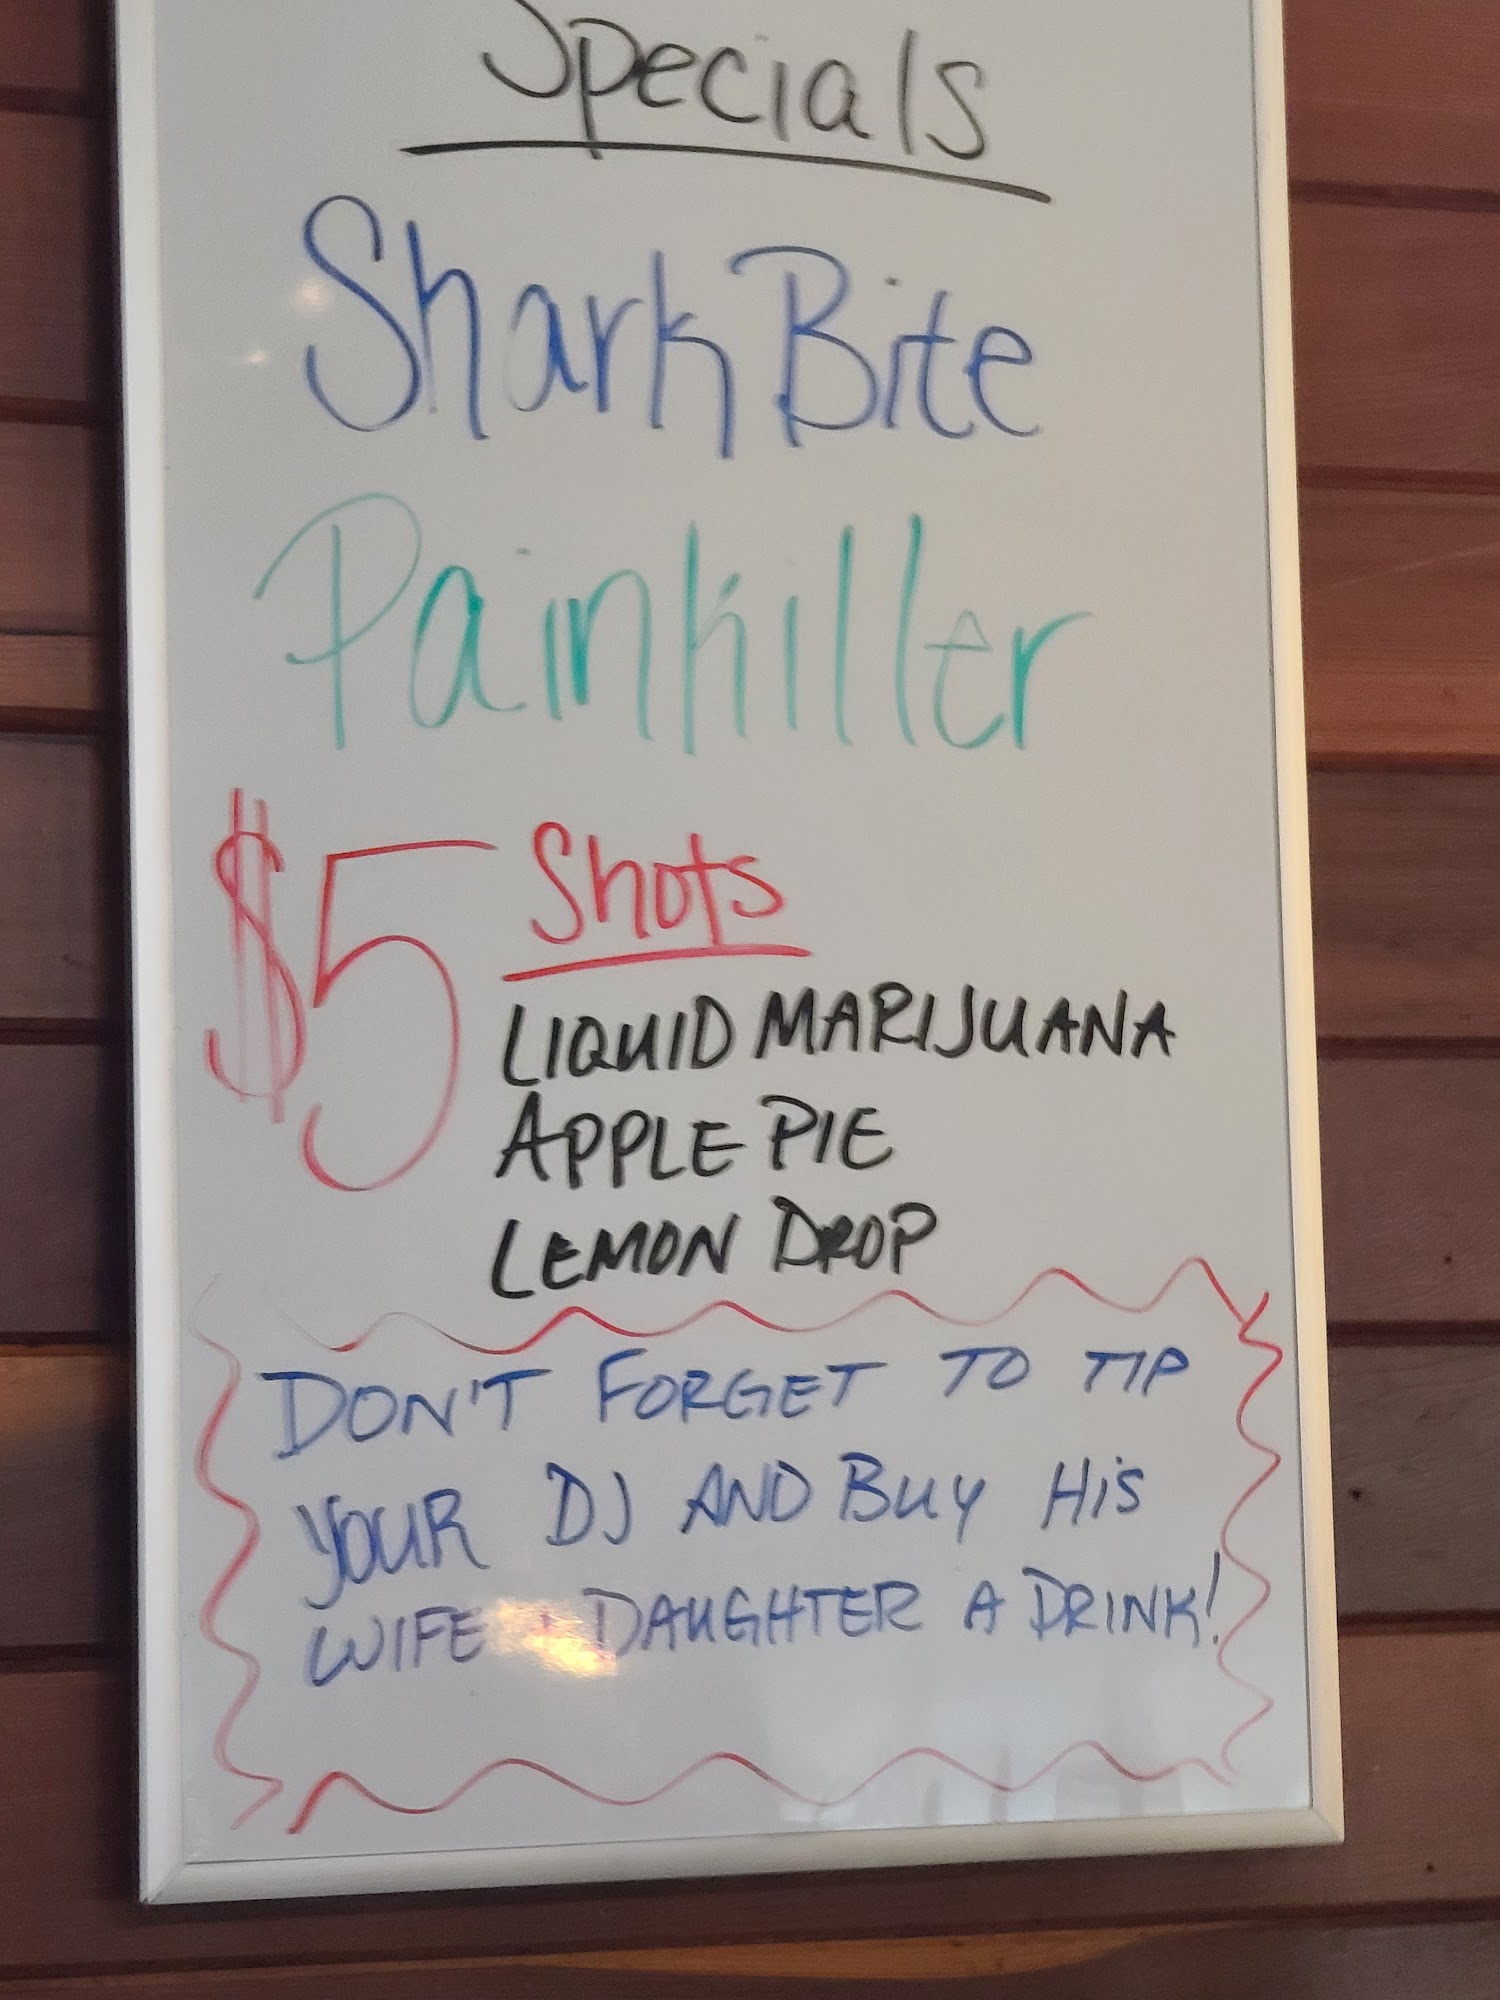 Specials
Shark Bite
Painkiller
$5 Shots
LIQUID MARIJUANA
APPLE PIE
LEMON DROP
DON'T FORGET TO TIP
YOUR DJ AND BUY HiS
WIFE + DAUGHTER A DRINK!